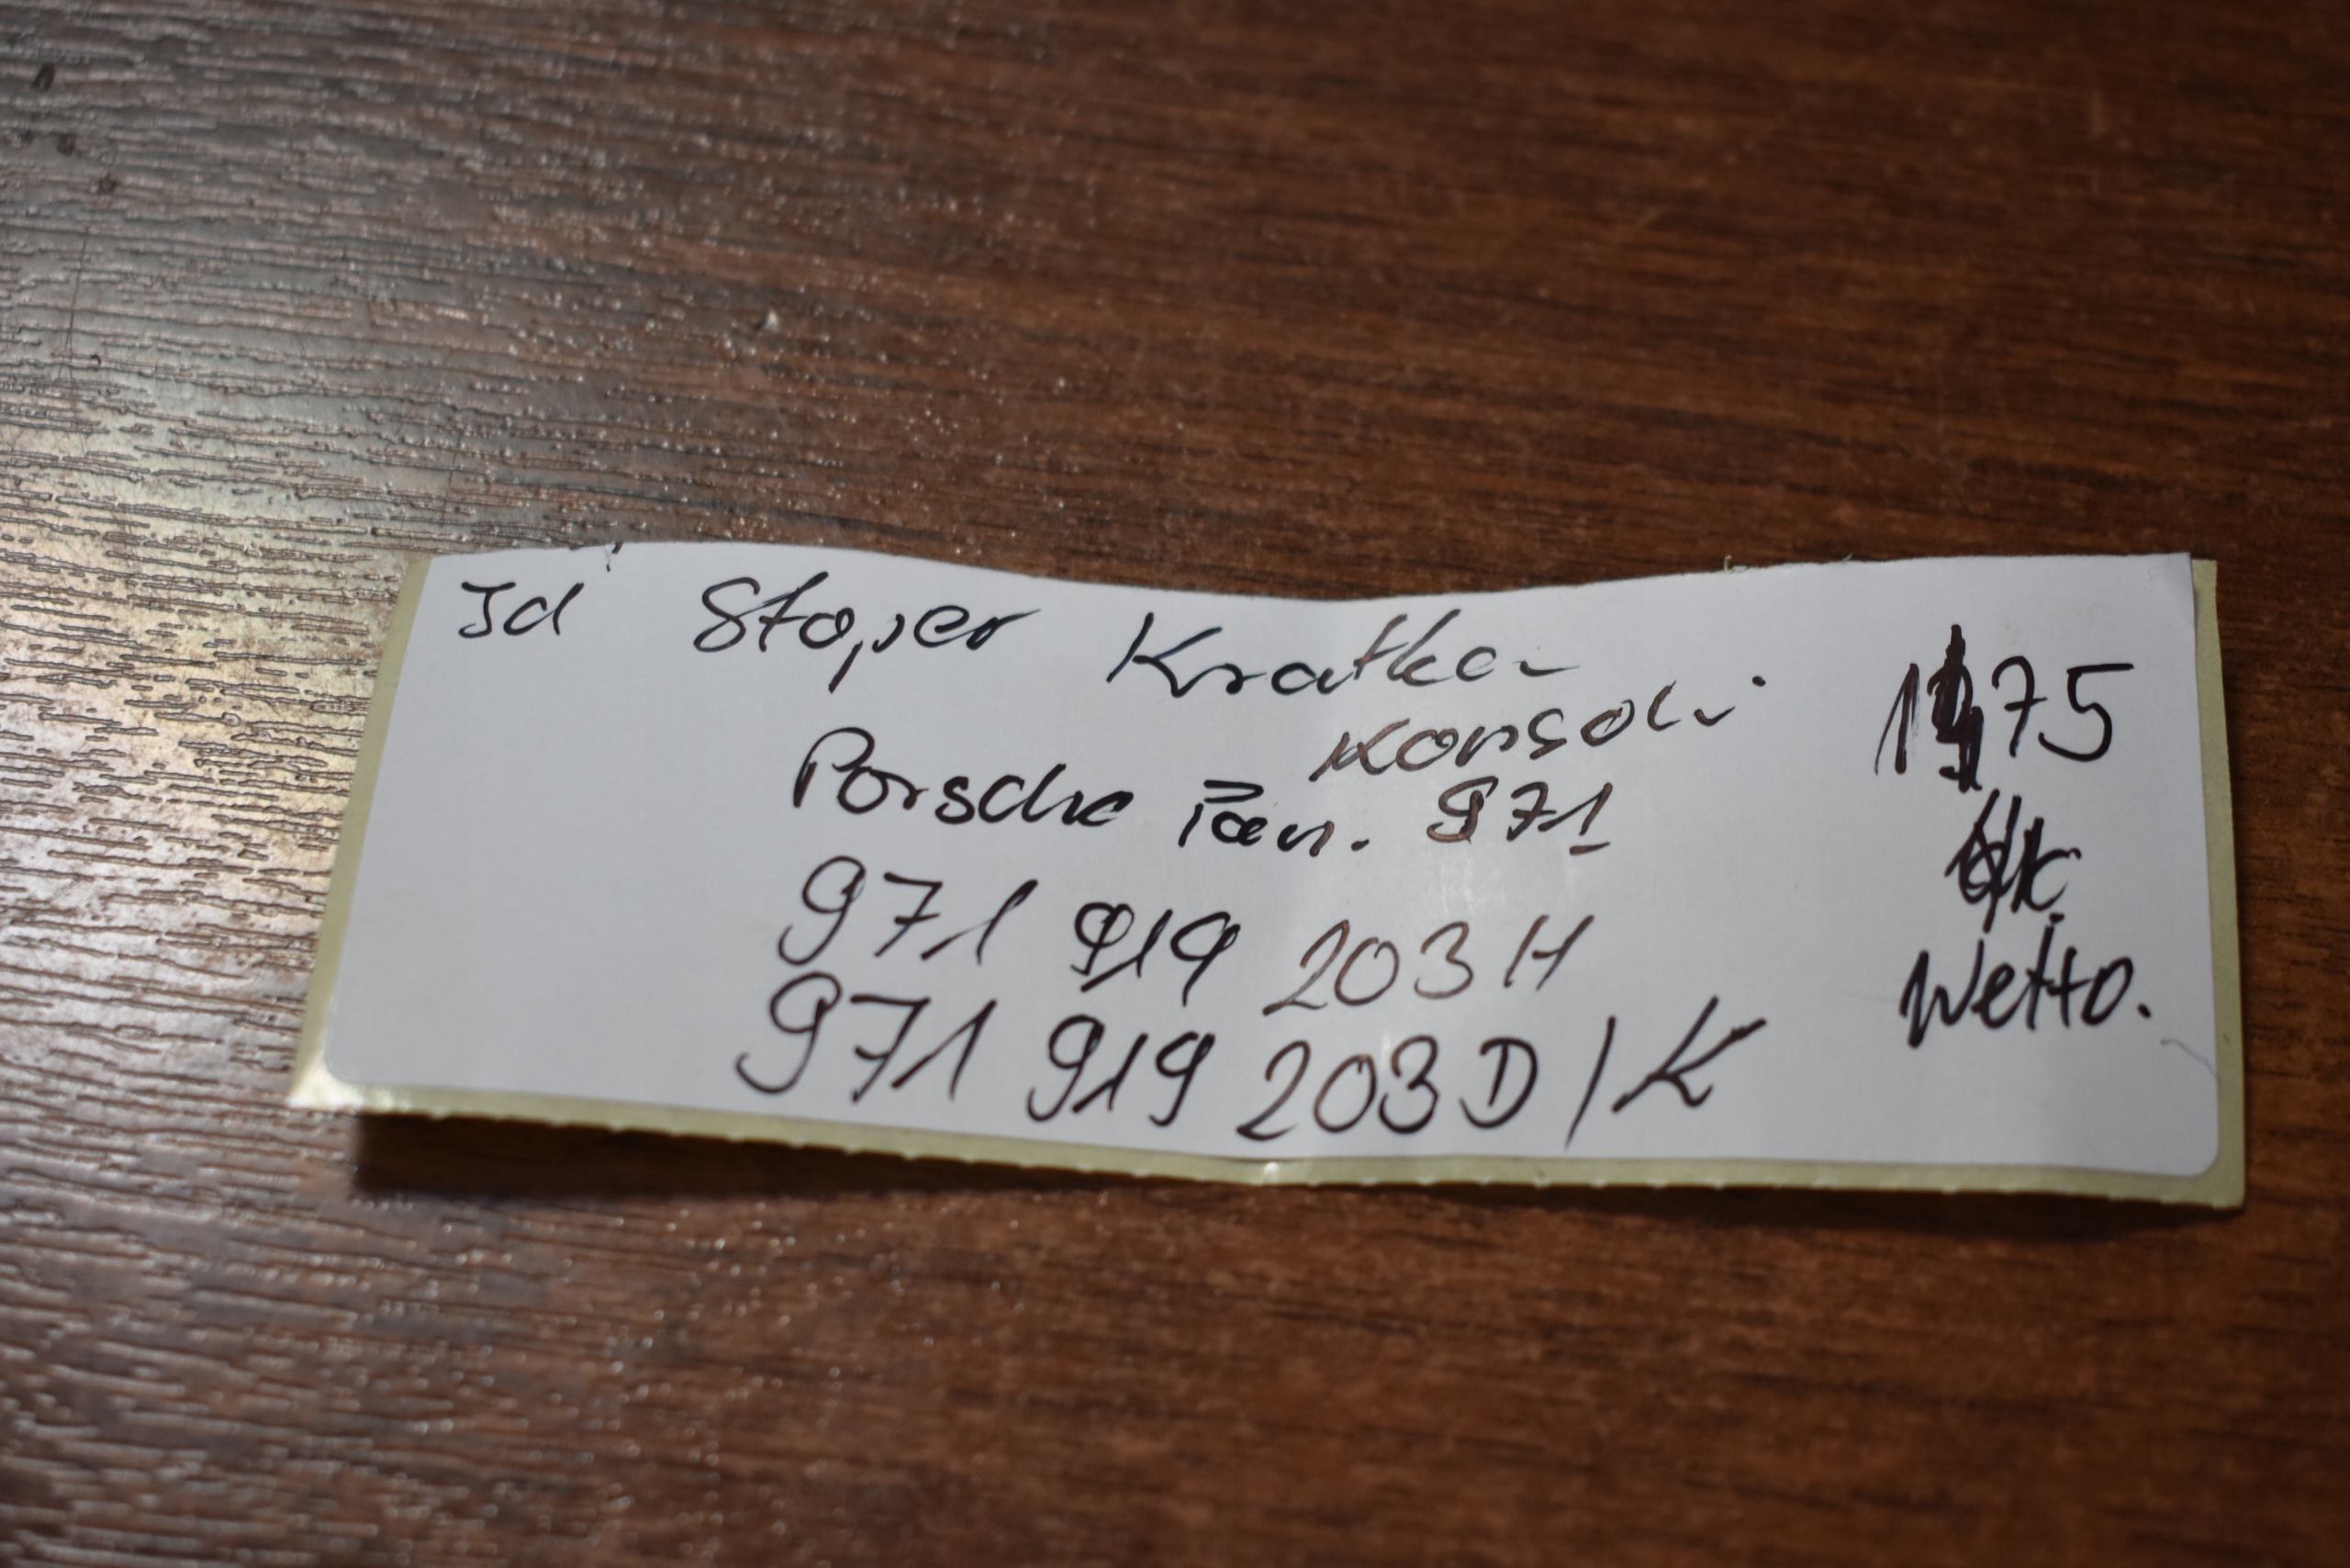 Jd Stoper Kratka
Konsoli
Porsche Pan. 971
971 919 203 H
971 919 203 D / K
1975
Netto.